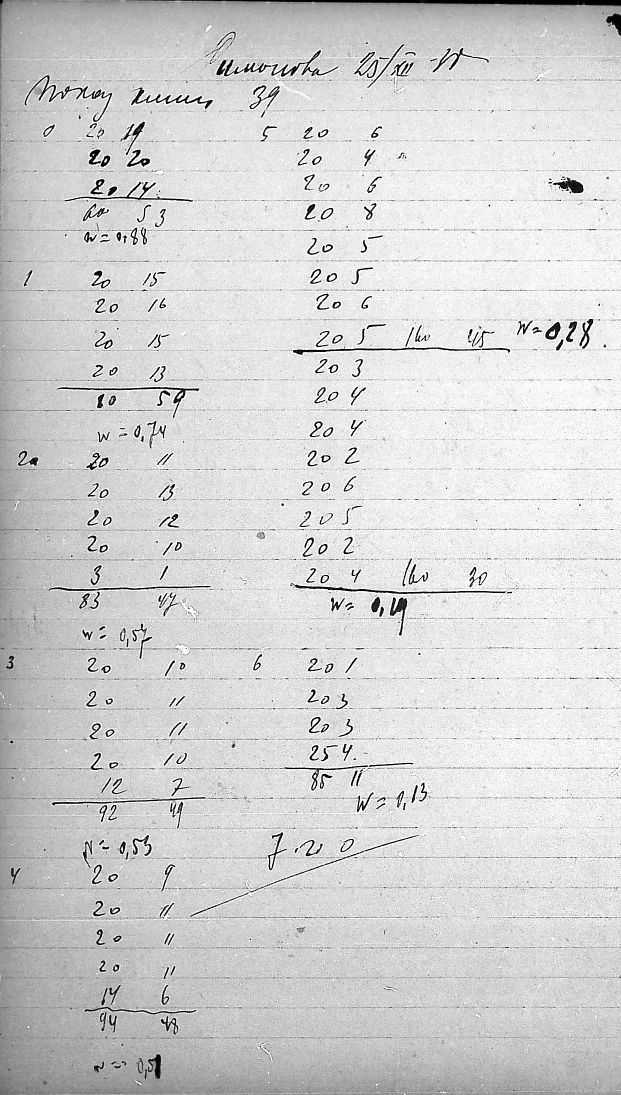 25/XII
39
0 20 19
20 20
20 14
60 53
w = 0,88
1 20 15
20 16
20 15
20 13
80 59
w = 0,74
2a 20 11
20 13
20 12
20 10
3 1
83 47
w = 0,57
3 20 10
20 11
20 11
20 10
12 7
92 49
w = 0,53
4 20 9
20 11
20 11
20 11
14 6
94 48
w = 0,51
5 20 6
20 4
20 6
20 8
20 5
20 5
20 6
20 5 160 45 w = 0,28
20 3
20 4
20 4
20 2
20 6
20 5
20 2
20 4 160 30
w = 0,19
6 20 1
20 3
20 3
25 4
85 11
w = 0,13
7. 20 0